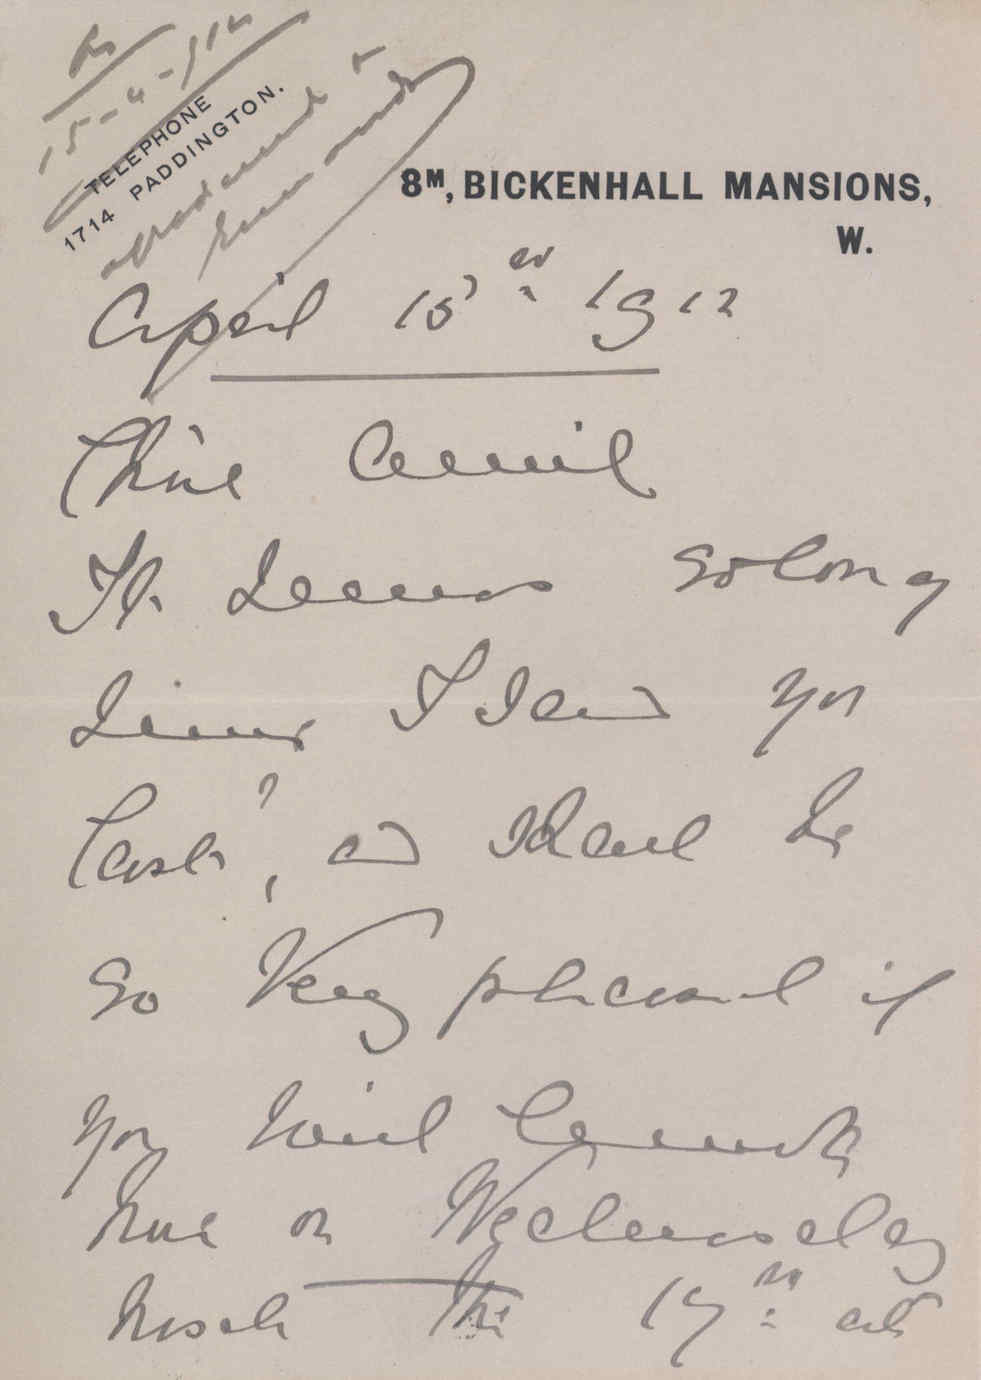 15-4-/12
TELEPHONE
1714 PADDINGTON.
8M, BICKENHALL MANSIONS,
W.
April 13 1912
It seems so long
since I saw you
last, and shall be
so very pleased if
you will
here on Wednesday
next the 17th at